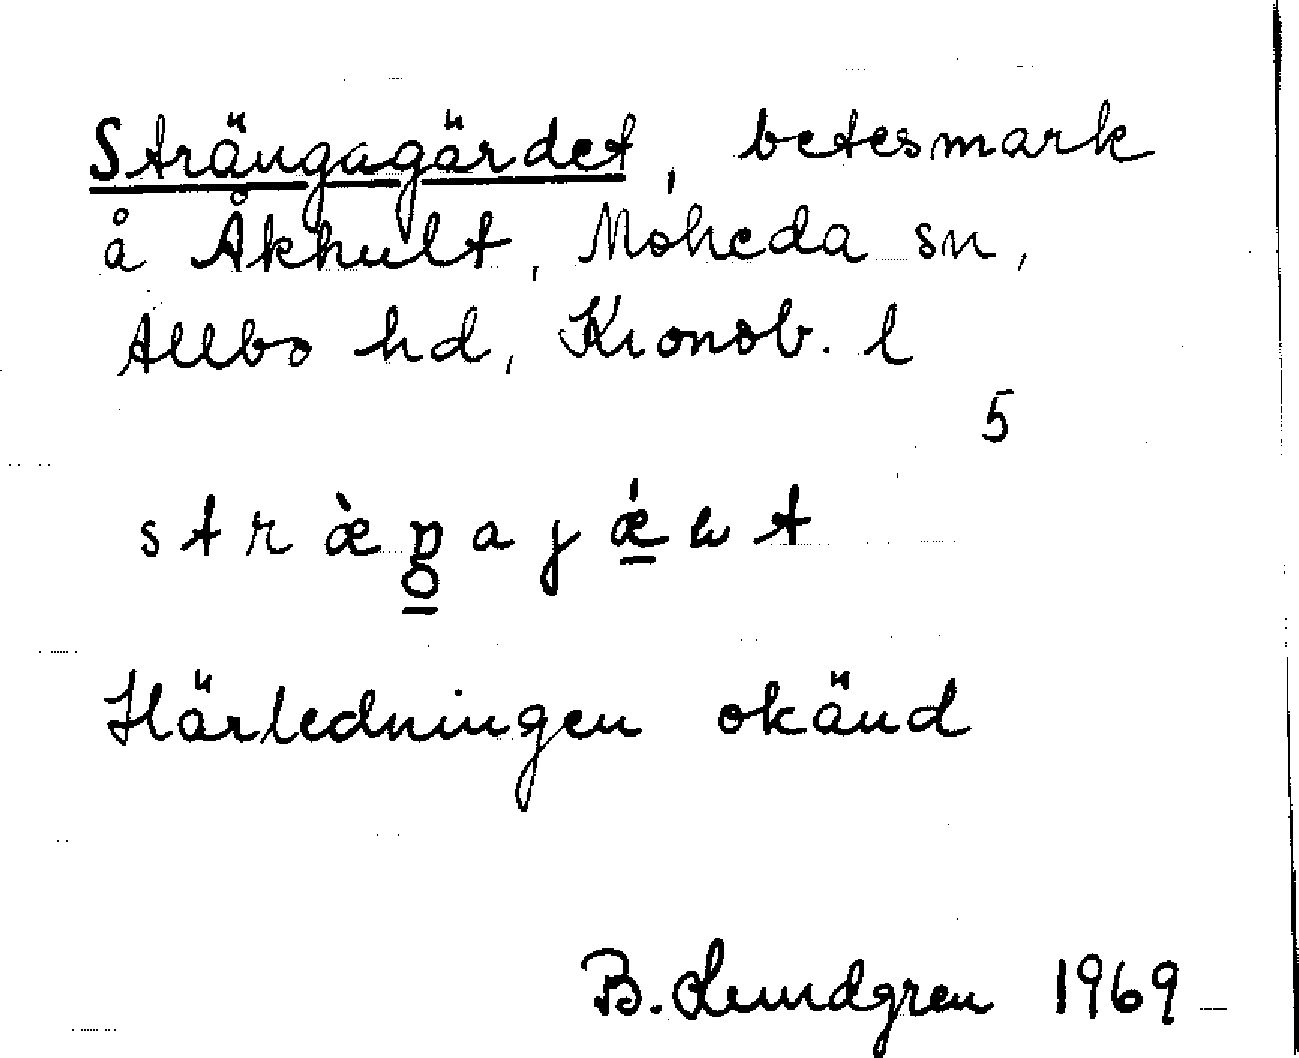 Strängagärdet, betesmark
å Åkhult, Moheda sn,
Allbo hd, Kronob. l
5
Härledningen okänd
B. Lundgren 1969